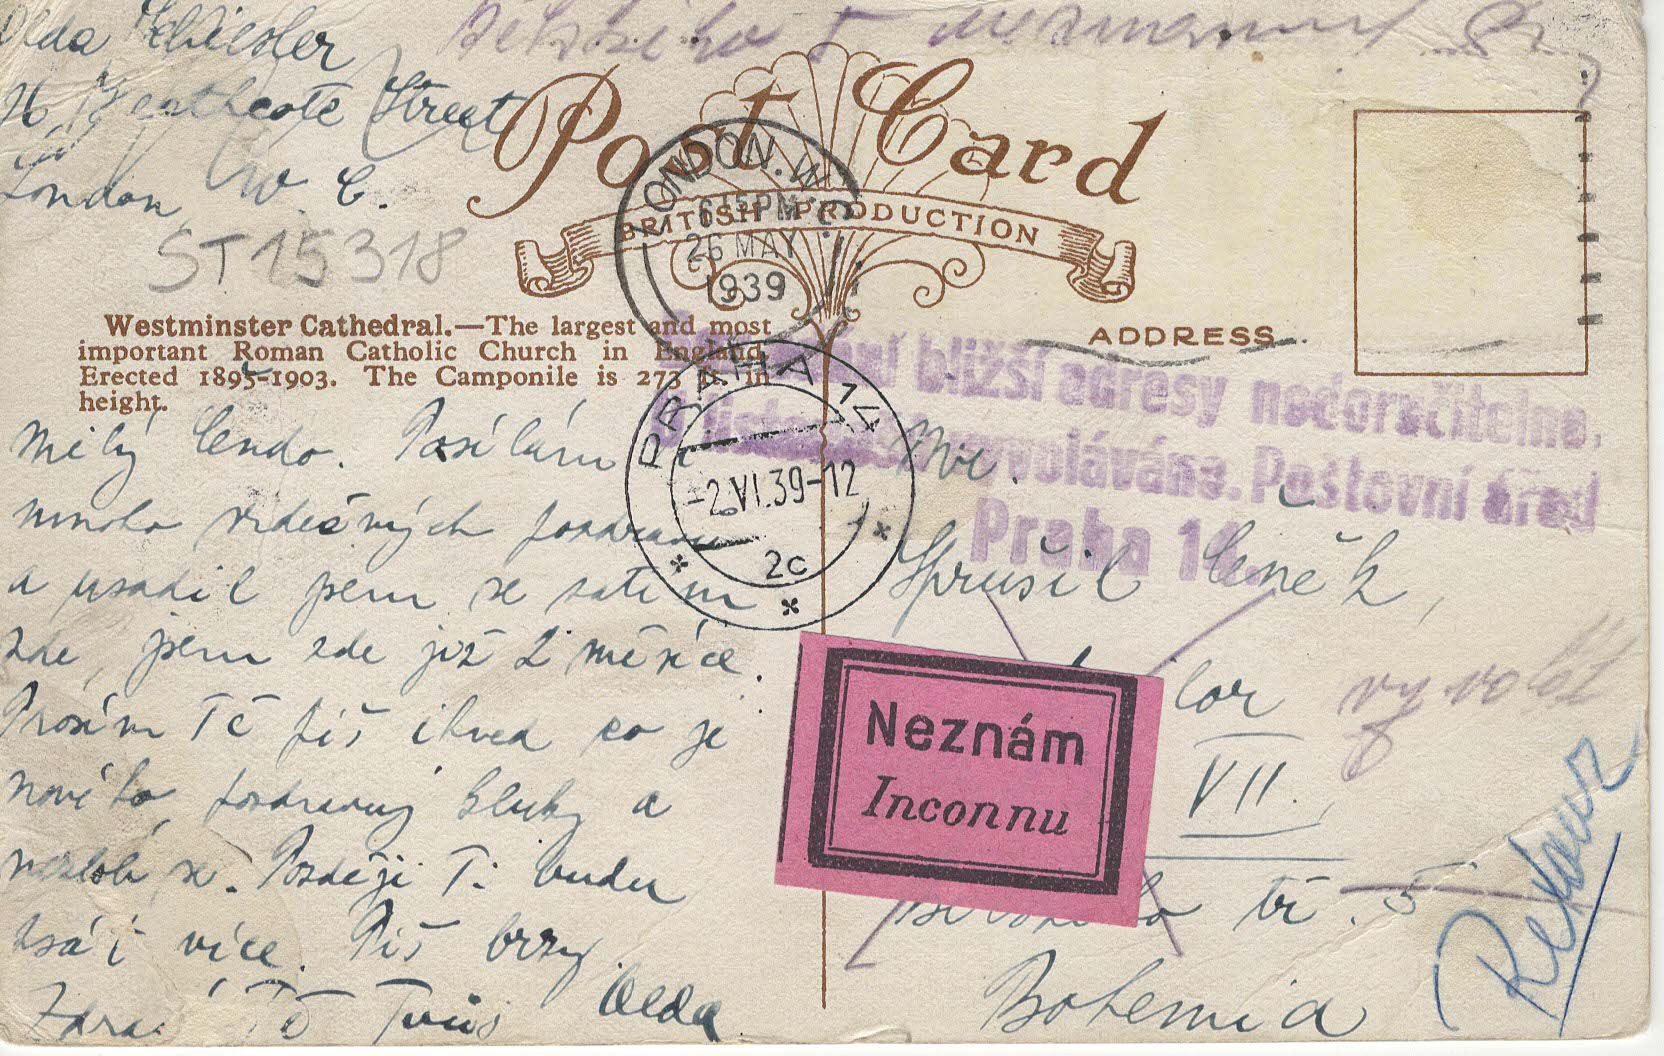 Olda
Street
London, W. C.
ST 15318
Post Card
BRITISH PRODUCTION
LONDON. W.C.
6 15 PM
26 MAY
1939
Westminster Cathedral.—The largest and most
important Roman Catholic Church in England.
Erected 1895-1903. The Camponile is 273 ft. in
height.
ADDRESS
bližší adresy nedoručitelno,
Poštovní úřad
Praha 14.
PRAHA 14
-2.VI.39-12
2c
Milý Čendo. Posílám Ti
mnoho srdečných pozdravů
a usadil jsem se zatím
zde, jsem zde již 2 měsíce.
Prosím Tě piš ihned co je
nového, pozdravuj kluky a
nezlob se. Později Ti budu
psát více. Piš brzy.
Zdraví Tě Tvůj Olda
Mr.
Sprušil Čeněk,
VII.
tř. 5
Bohemia
Neznám
Inconnu
Retour